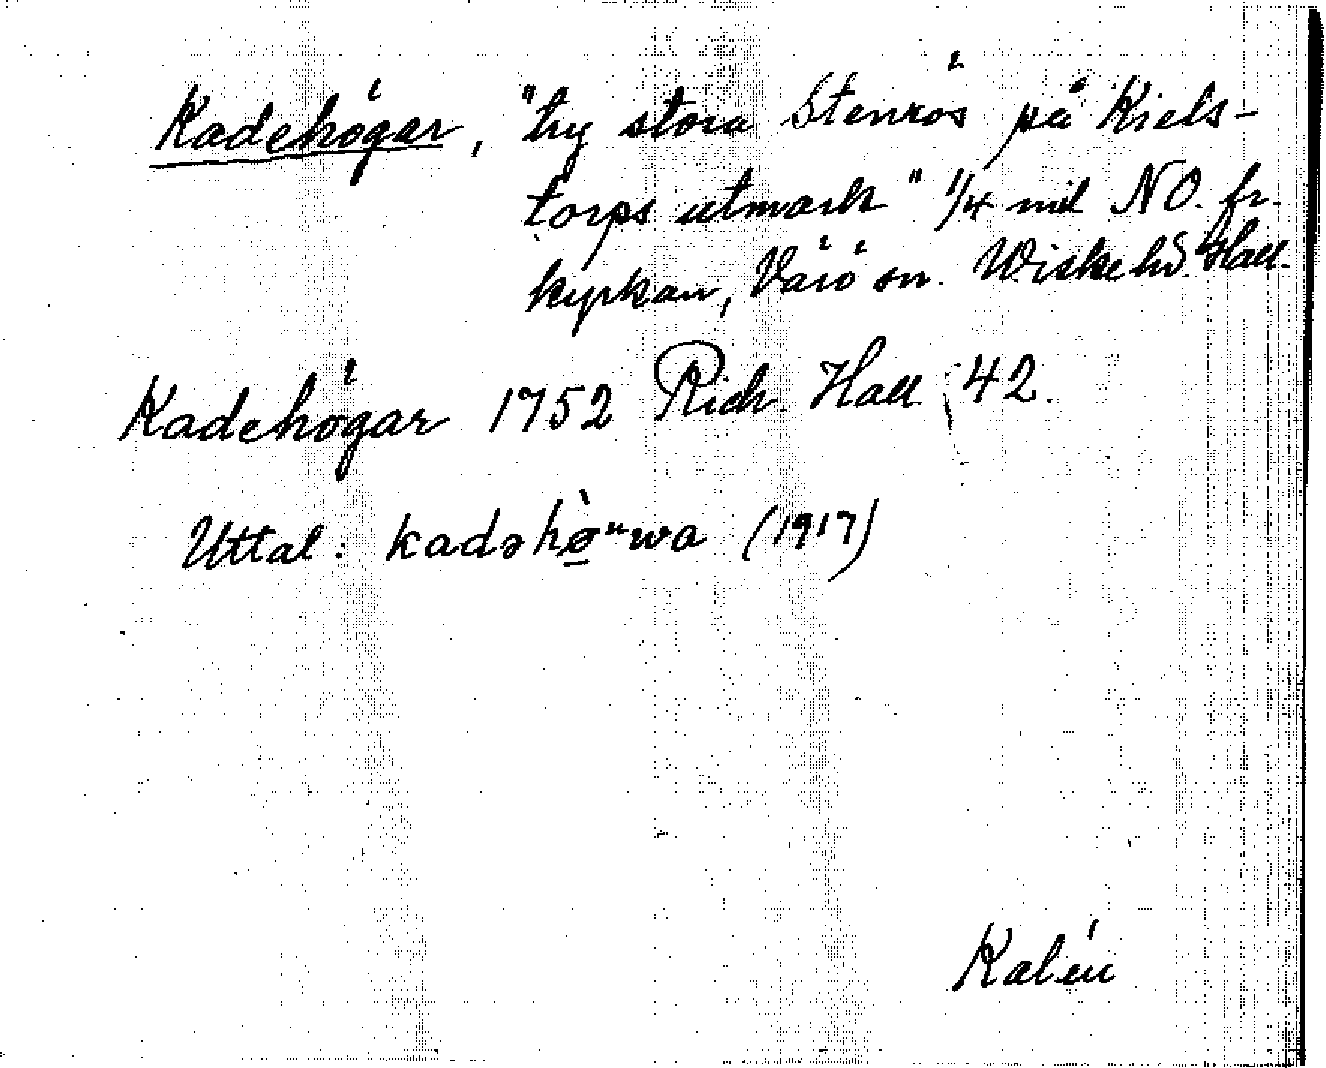 Kadehögar, "try stora Stenrös på Kiels-
torps utmark" 1/4 mil NO. fr.
kyrkan, Värö sn. Wiske hd. Hall.
Kadehögar 1752 Rich. Hall. 42.
Uttal: kadəhø̀ʷwa (1917)
Kalén